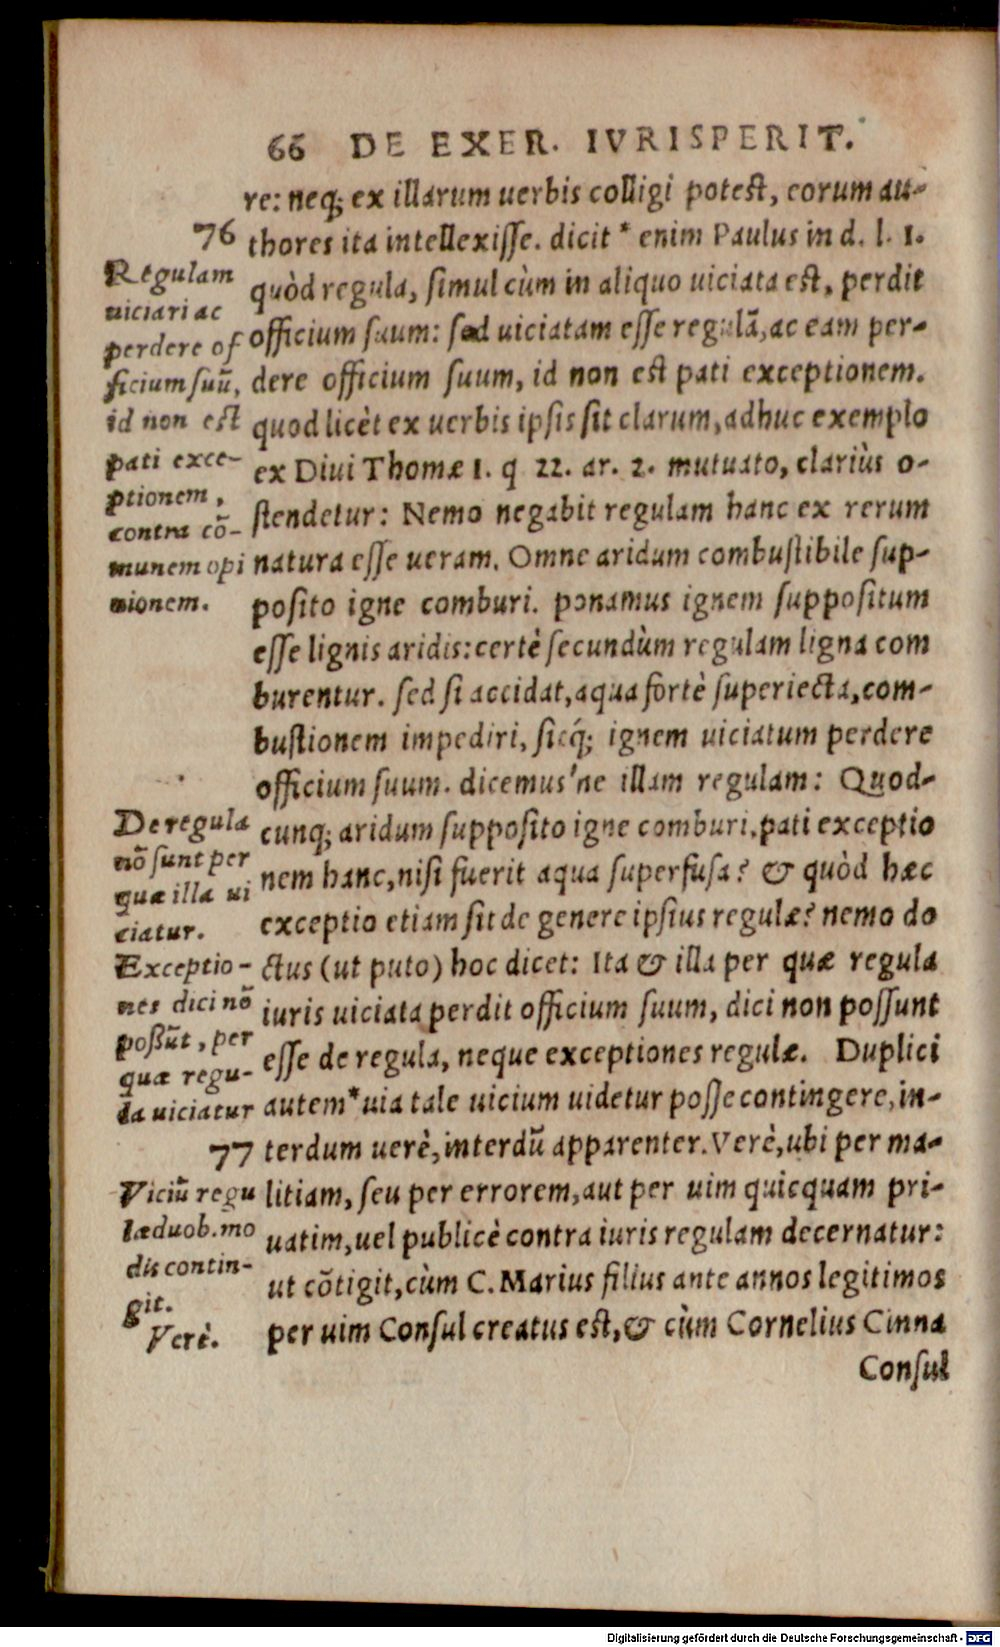 66 DE EXER. IVRISPERIT.
re: neq; ex illarum uerbis colligi potest, eorum au-
thores ita intellexiſſe. dicit * enim Paulus in d. l. 1.
quòd regula, ſimul cùm in aliquo uiciata est, perdit
officium ſuum: ſed uiciatam eſſe regulã, ac eam per-
dere officium ſuum, id non est pati exceptionem.
quod licèt ex uerbis ipſis ſit clarum, adhuc exemplo
ex Diui Thomæ 1. q 22. ar. 2. mutuato, clariùs o-
ſtendetur: Nemo negabit regulam hanc ex rerum
natura eſſe ueram. Omne aridum combuſtibile ſup-
poſito igne comburi. ponamus ignem ſuppoſitum
eſſe lignis aridis: certè ſecundùm regulam ligna com
burentur. ſed ſi accidat, aqua fortè ſuperiecta, com-
buſtionem impediri, ſicq́; ignem uiciatum perdere
officium ſuum. dicemus'ne illam regulam: Quod-
cunq; aridum ſuppoſito igne comburi, pati exceptio
nem hanc, niſi fuerit aqua ſuperfuſa? & quòd hæc
exceptio etiam ſit de genere ipſius regulæ? nemo do
ctus (ut puto) hoc dicet: Ita & illa per quæ regula
iuris uiciata perdit officium ſuum, dici non poſſunt
eſſe de regula, neque exceptiones regulæ. Duplici
autem * uia tale uicium uidetur poſſe contingere, in-
terdum uerè, interdũ apparenter. Verè, ubi per ma-
litiam, ſeu per errorem, aut per uim quicquam pri-
uatim, uel publicè contra iuris regulam decernatur:
ut cõtigit, cùm C. Marius filius ante annos legitimos
per uim Conſul creatus est, & cùm Cornelius Cinna
Conſul
76
Regulam
uiciari ac
perdere of
ficium ſuũ,
id non est
pati exce-
ptionem,
contra cõ-
munem opi
nionem.
De regula
nõ ſunt per
quæ illa ui
ciatur.
Exceptio-
nes dici nõ
poßũt, per
quæ regu-
la uiciatur
77
Viciũ regu
læ duob. mo
dis contin-
git.
Verè.
Digitalisierung gefördert durch die Deutsche Forschungsgemeinschaft - DFG